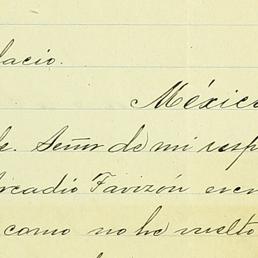 lacio.
México
Señor de mi resp
rcadio Favizón
como no he vuelto